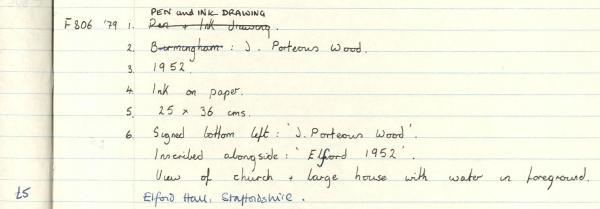 PEN and INK DRAWING
F806 '79 1. Pen + Ink drawing.
2. Birmingham : J. Porteous Wood.
3. 1952.
4. Ink on paper.
5. 25 × 36 cms.
6. Signed bottom left : 'J. Porteous Wood'.
Inscribed alongside : 'Elford 1952'.
View of church + large house with water in foreground.
£5 Elford Hall, Staffordshire.